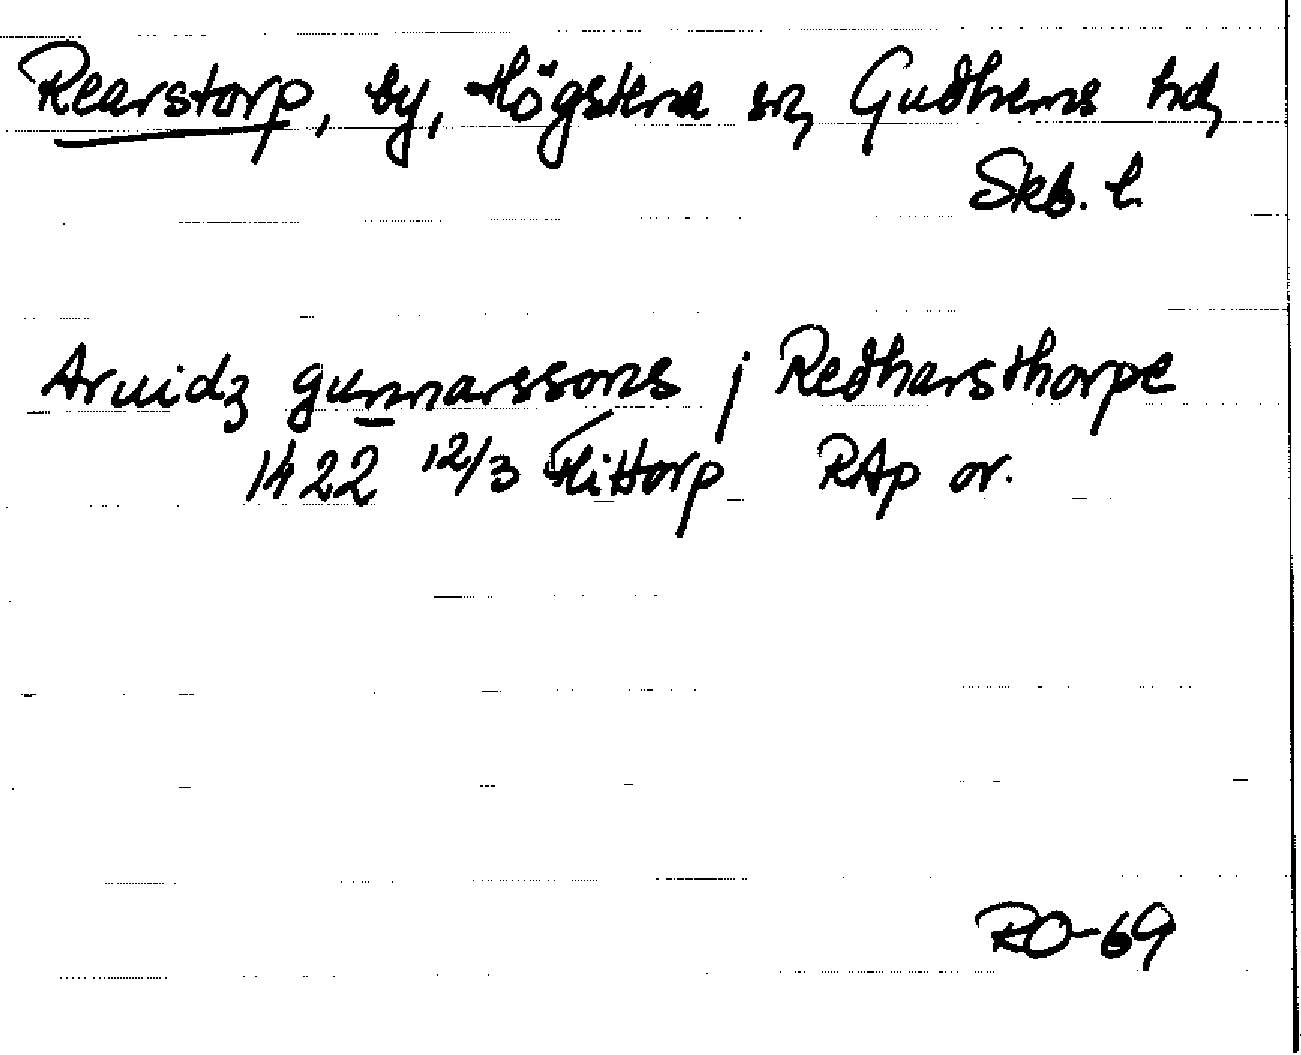 Rearstorp, by, Högstena sn, Gudhems hd,
Skb. l.
Aruidz gunnarssons j Redharsthorpe
1422 12/3 Hittorp RAp or.
RO-69